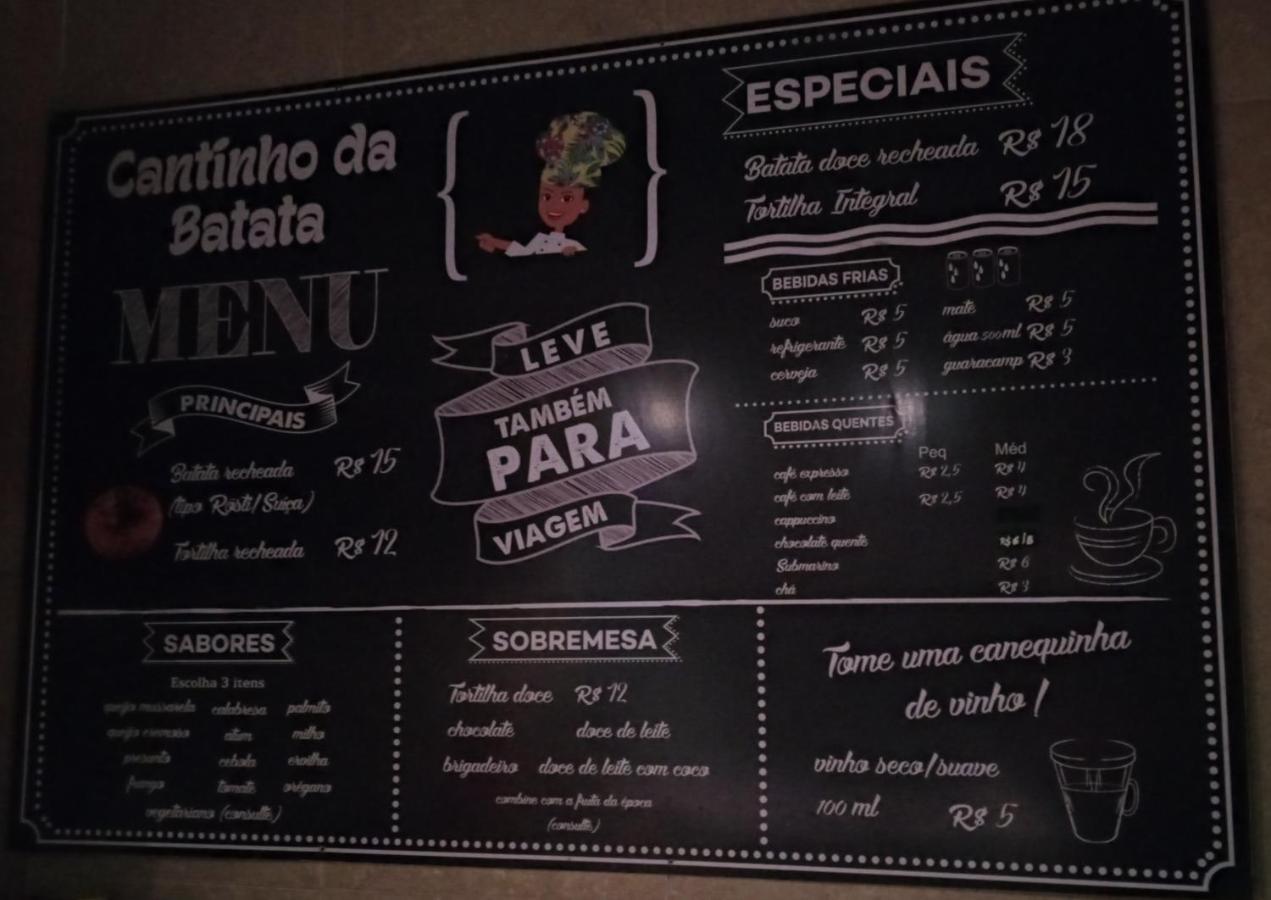 Cantinho da
Batata
MENU
PRINCIPAIS
Batata recheada R$ 15
(tipo Rosti/Suíça)
Tortilha recheada R$ 12
LEVE
TAMBÉM
PARA
VIAGEM
ESPECIAIS
Batata doce recheada R$ 18
Tortilha Integral R$ 15
BEBIDAS FRIAS
suco R$ 5
refrigerante R$ 5
cerveja R$ 5
mate R$ 5
água 500ml R$ 5
guaracamp R$ 3
BEBIDAS QUENTES
Peq Méd
café expresso R$ 2,5 R$ 4
café com leite R$ 2,5 R$ 4
cappuccino
chocolate quente
Submarino R$ 6
chá R$ 3
SABORES
Escolha 3 itens
queijo mussarela calabresa palmito
queijo cremoso atum milho
presunto cebola ervilha
frango tomate orégano
vegetariano (consulte)
SOBREMESA
Tortilha doce R$ 12
chocolate doce de leite
brigadeiro doce de leite com coco
combine com a fruta da época
(consulte)
Tome uma canequinha
de vinho!
vinho seco/suave
100 ml R$ 5